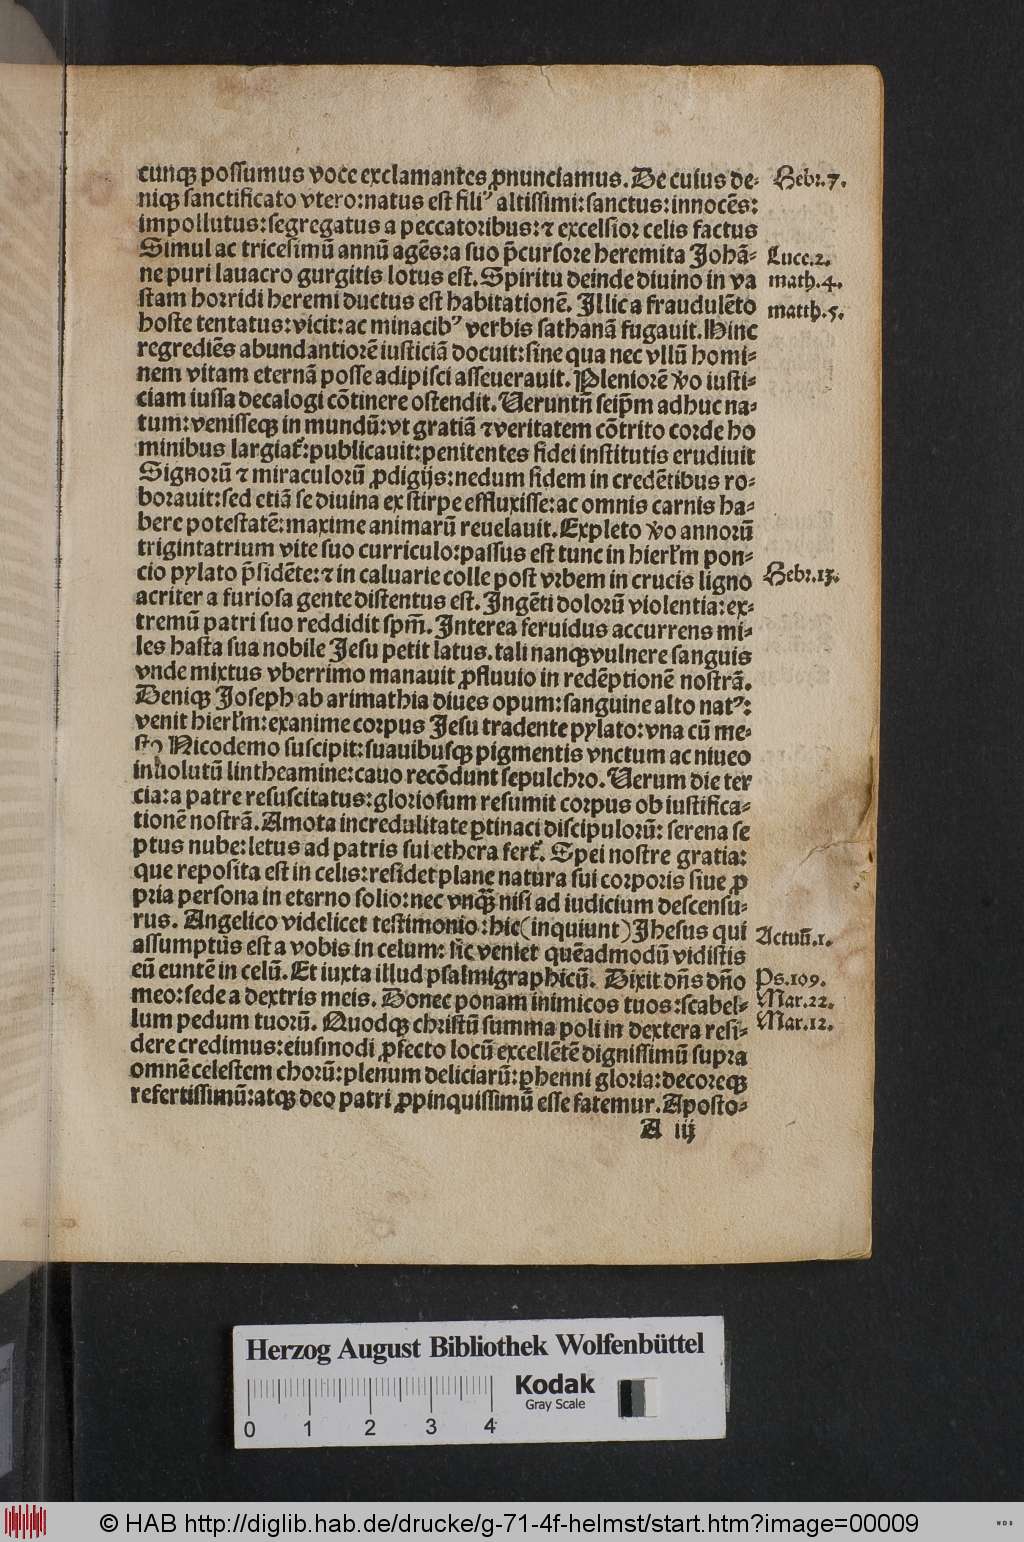 cunqꝫ possumus voce exclamantes ꝓnunciamus. De cuius de⸗
niqꝫ sanctificato vtero: natus est filiꝰ altissimi: sanctus: innocēs:
impollutus: segregatus a peccatoribus: ⁊ excelsior celis factus
Simul ac tricesimū annū agēs: a suo p̄cursore heremita Johā⸗
ne puri lauacro gurgitis lotus est. Spiritu deinde diuino in va
stam horridi heremi ductus est habitationē. Illic a fraudulēto
hoste tentatus: vicit: ac minacibꝰ verbis sathanā fugauit. Hinc
regrediēs abundantiorē iusticiā docuit: sine qua nec vllū homi⸗
nem vitam eternā posse adipisci asseuerauit. Pleniorē v̄o iusti⸗
ciam iussa decalogi cōtinere ostendit. Veruntn̄ seip̄m adhuc na⸗
tum: venisseqꝫ in mundū: vt gratiā ⁊ veritatem cōtrito corde ho
minibus largiat᷑: publicauit: penitentes fidei institutis erudiuit
Signorū ⁊ miraculorū ꝓdigijs: nedum fidem in credētibus ro⸗
borauit: sed etiā se diuina ex stirpe effluxisse: ac omnis carnis ha⸗
bere potestatē: maxime animarū reuelauit. Expleto v̄o annorū
trigintatrium vite suo curriculo: passus est tunc in hierl'm pon⸗
cio pylato p̄sidēte: ⁊ in caluarie colle post vrbem in crucis ligno
acriter a furiosa gente distentus est. Ingēti dolorū violentia: ex⸗
tremū patri suo reddidit spm̄. Interea feruidus accurrens mi⸗
les hasta sua nobile Jesu petit latus. tali nanqꝫ vulnere sanguis
vnde mixtus vberrimo manauit ꝓfluuio in redēptionē nostrā.
Deniqꝫ Joseph ab arimathia diues opum: sanguine alto natꝰ:
venit hierl'm: exanime corpus Jesu tradente pylato: vna cū me⸗
sto Nicodemo suscipit: suauibusqꝫ pigmentis vnctum ac niueo
inuolutū lintheamine: cauo recōdunt sepulchro. Verum die ter
cia: a patre resuscitatus: gloriosum resumit corpus ob iustifica⸗
tionē nostrā. Amota incredulitate ꝑtinaci discipulorū: serena se
ptus nube: letus ad patris sui ethera fert᷑. Spei nostre gratia:
que reposita est in celis: residet plane natura sui corporis siue ꝓ
pria persona in eterno solio: nec vnqꝫ̄ nisi ad iudicium descensu⸗
rus. Angelico videlicet testimonio: hic (inquiunt) Jhesus qui
assumptus est a vobis in celum: sic veniet quēadmodū vidistis
eū euntē in celū. Et iuxta illud psalmigraphicū. Dixit dn̄s dn̄o
meo: sede a dextris meis. Donec ponam inimicos tuos: scabel⸗
lum pedum tuorū. Quodqꝫ christū summa poli in dextera resi⸗
dere credimus: eiusmodi ꝓfecto locū excellētē dignissimū supra
omnē celestem chorū: plenum deliciarū: ꝑhenni gloria: decoreqꝫ
refertissimū: atqꝫ deo patri ꝓpinquissimū esse fatemur. Aposto⸗
A iij
Hebr. 7.
Luce. 2.
math. 4.
matth. 5.
Hebr. 13.
Actuū. 1.
Ps. 109.
Mar. 22.
Mar. 12.
Herzog August Bibliothek Wolfenbüttel
Kodak
Gray Scale
0 1 2 3 4
© HAB http://diglib.hab.de/drucke/g-71-4f-helmst/start.htm?image=00009